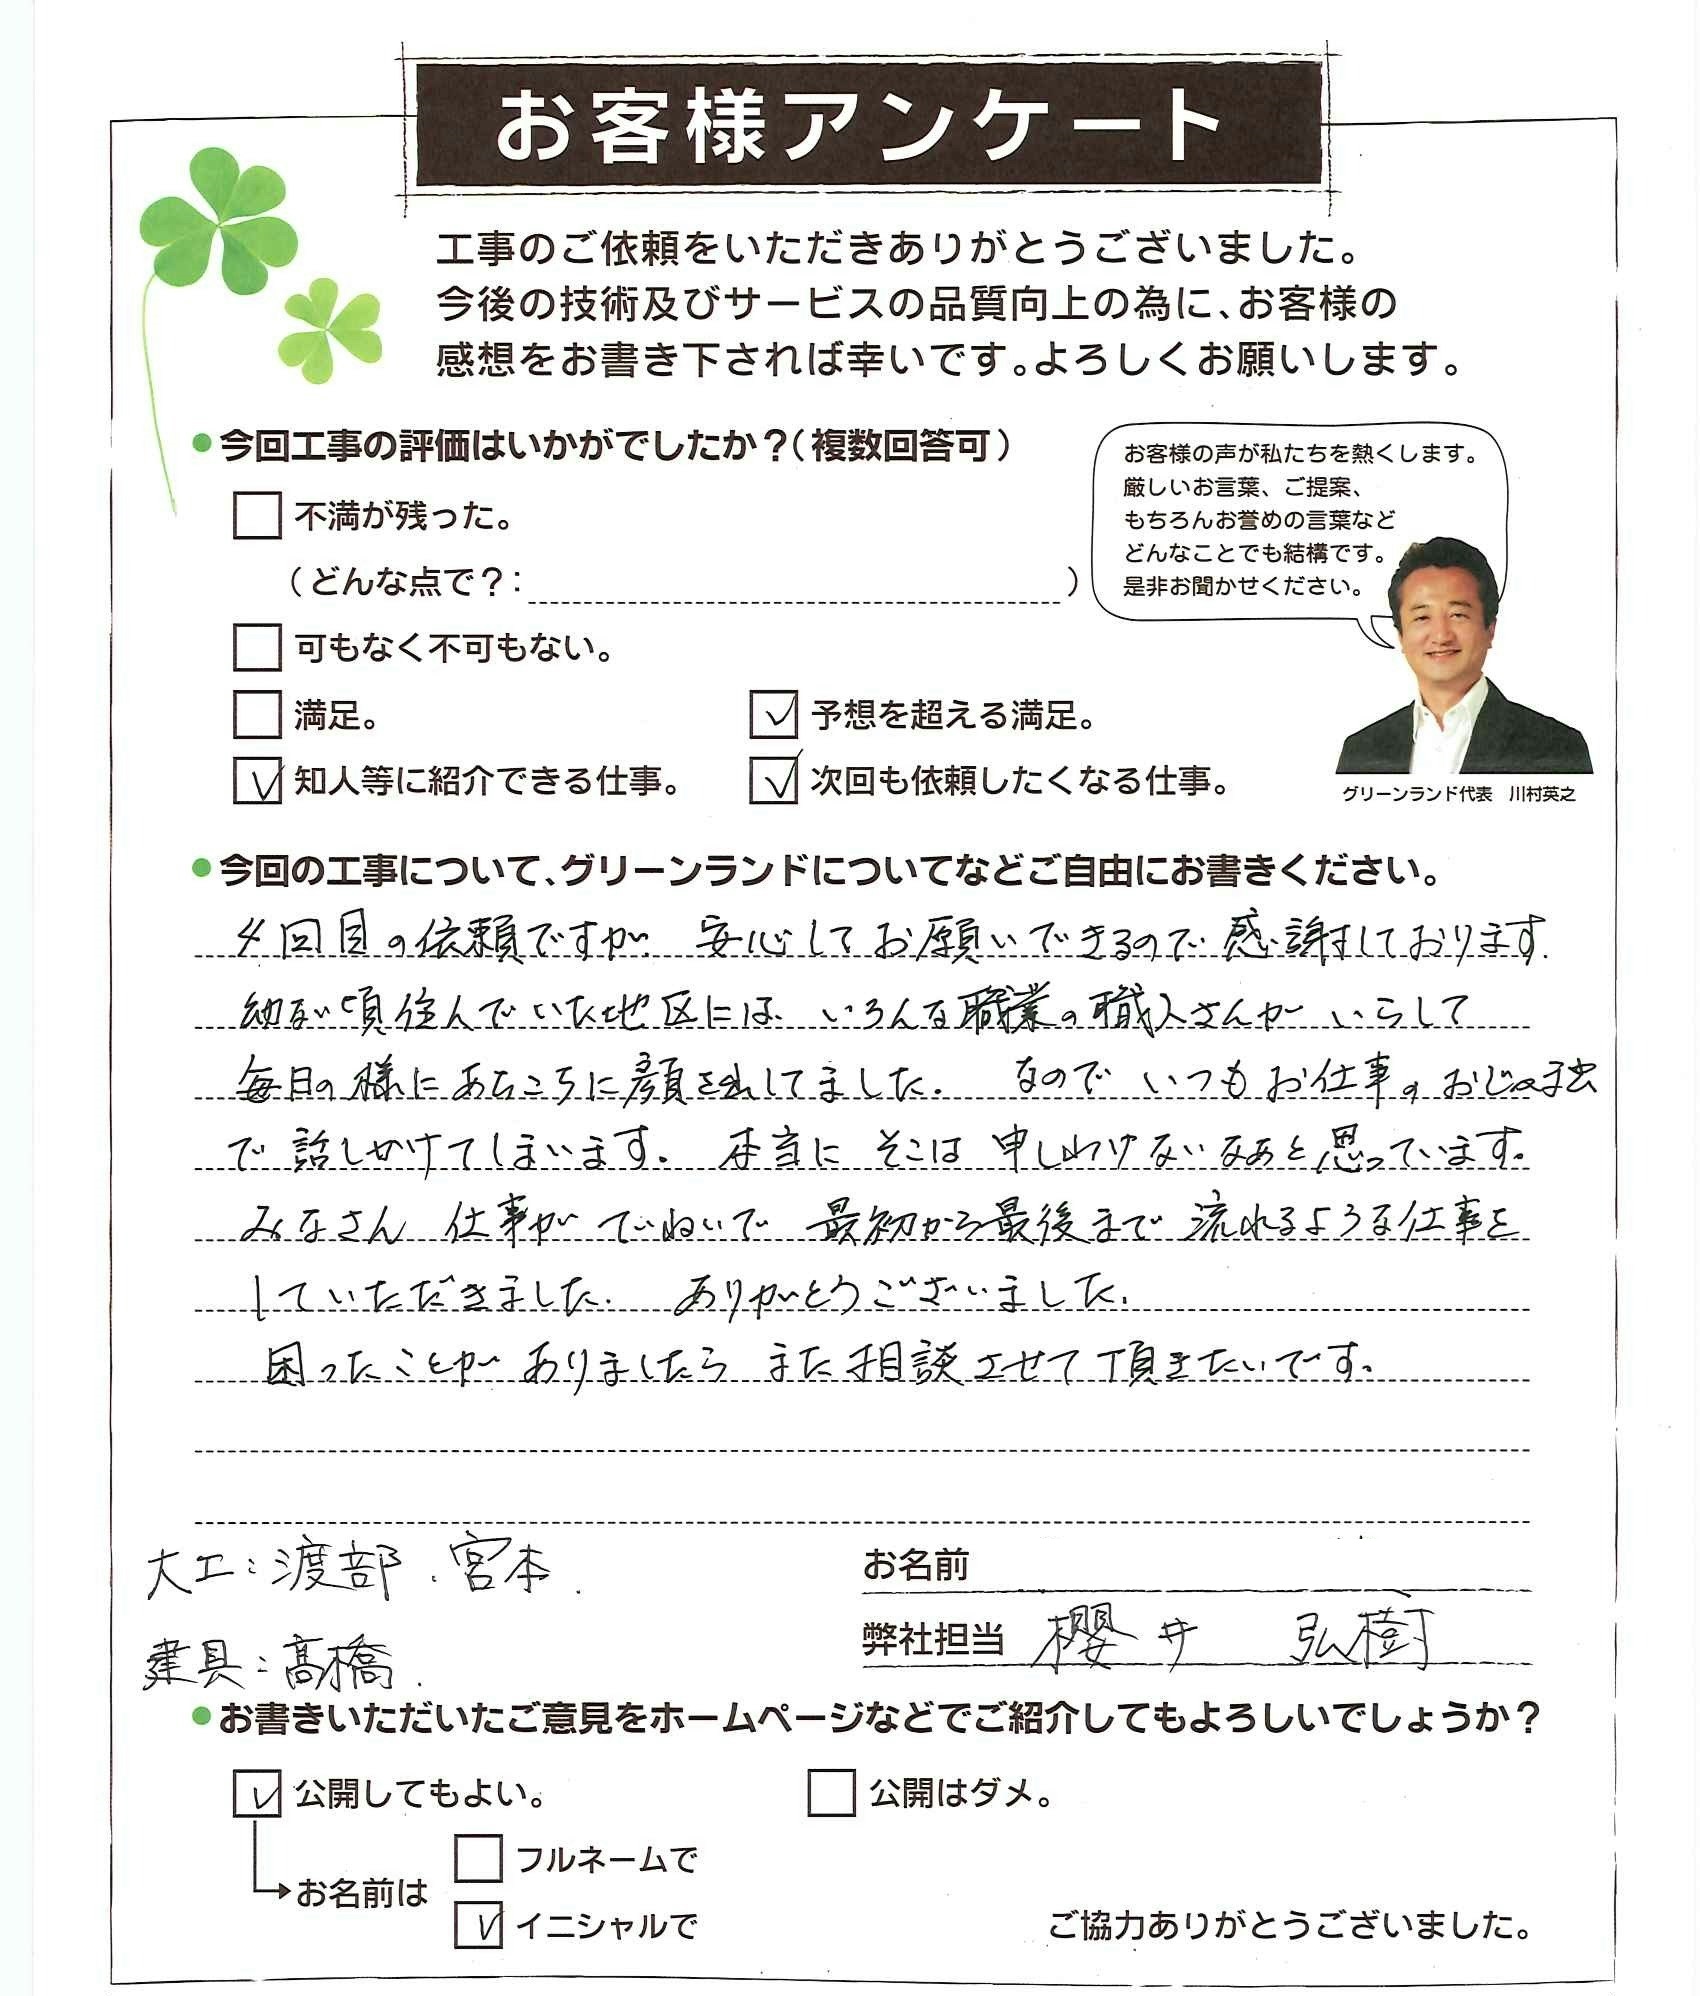 お客様アンケート
工事のご依頼をいただきありがとうございました。
今後の技術及びサービスの品質向上の為に、お客様の
感想をお書き下されば幸いです。よろしくお願いします。
●今回工事の評価はいかがでしたか？（複数回答可）
不満が残った。
（どんな点で？：　）
可もなく不可もない。
満足。
予想を超える満足。
知人等に紹介できる仕事。
次回も依頼したくなる仕事。
お客様の声が私たちを熱くします。
厳しいお言葉、ご提案、
もちろんお誉めの言葉など
どんなことでも結構です。
是非お聞かせください。
グリーンランド代表　川村英之
●今回の工事について、グリーンランドについてなどご自由にお書きください。
4回目の依頼ですが、安心してお願いできるので感謝しております。
幼ない頃住んでいた地区には、いろんな職業の職人さんがいらして
毎日の様にあちこちに顔を出してました。なのでいつもお仕事のおじゃま虫
で話しかけてしまいます。本当にそこは申しわけないなぁと思っています。
みなさん仕事がていねいで最初から最後まで流れるような仕事を
していただきました。ありがとうございました。
困ったことがありましたらまた相談させて頂きたいです。
大工：渡部、宮本.
建具：髙橋.
お名前
弊社担当　櫻井　弘樹
●お書きいただいたご意見をホームページなどでご紹介してもよろしいでしょうか？
公開してもよい。
公開はダメ。
お名前は
フルネームで
イニシャルで
ご協力ありがとうございました。